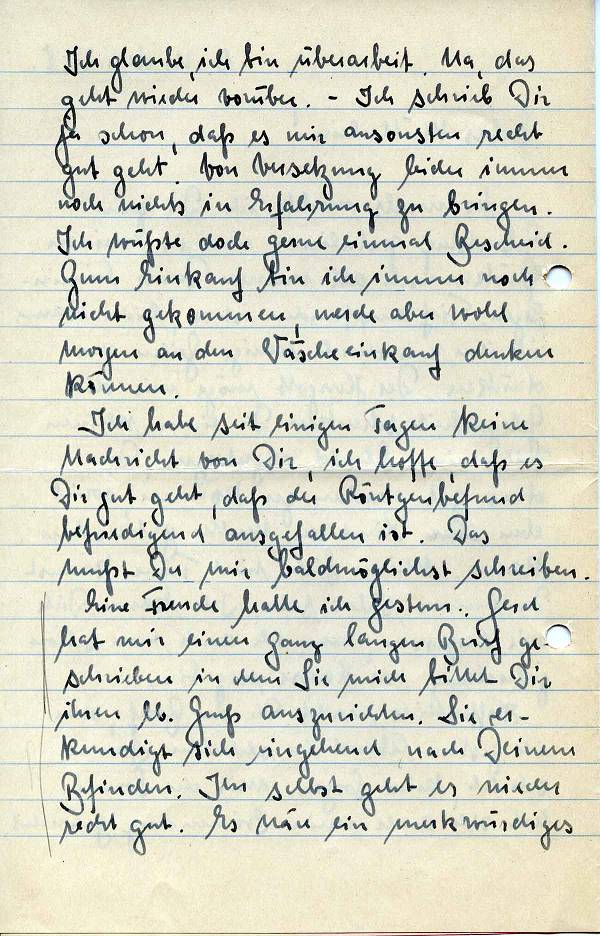 Ich glaube, ich bin überarbeit. Na, das
geht wieder vorüber. - Ich schrieb Dir
ja schon, daß es mir ansonsten recht
gut geht. Von Versetzung leider immer
noch nichts in Erfahrung zu bringen.
Ich wüßte doch gerne einmal Bescheid.
Zum Einkauf bin ich immer noch
nicht gekommen, werde aber wohl
morgen an den Wäscheeinkauf denken
können.
Ich habe seit einigen Tagen keine
Nachricht von Dir, ich hoffe, daß es
Dir gut geht, daß der Röntgenbefund
befriedigend ausgefallen ist. Das
mußt Du mir baldmöglichst schreiben.
Eine Freude hatte ich gestern. Gerd
hat mir einen ganz langen Brief ge-
schrieben in dem Sie mich bittet Dir
ihren lb. Gruß auszurichten. Sie er-
kundigt sich eingehend nach Deinem
Befinden. Ihr selbst geht es wieder
recht gut. Es wäre ein merkwürdiges